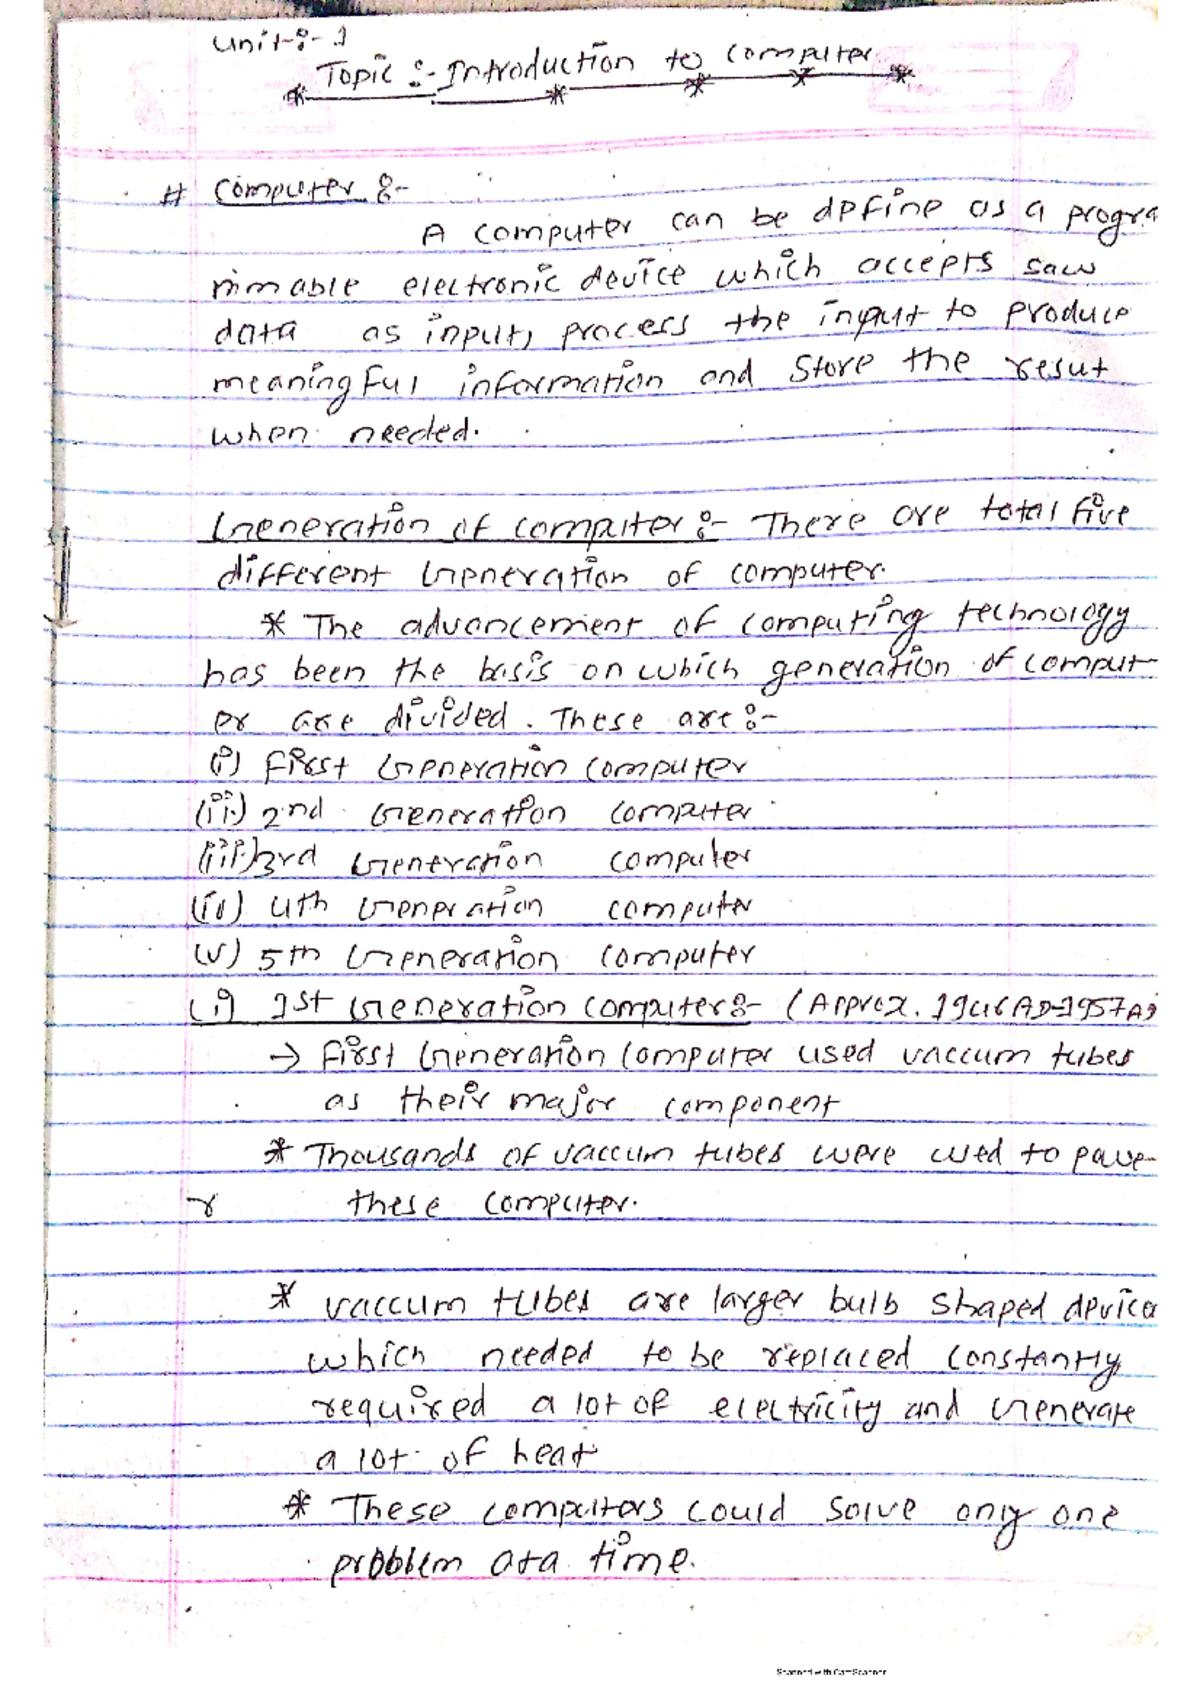 Unit:-1
Topic:- Introduction to computer
# Computer :-
A computer can be define as a progra
mmable electronic device which accepts saw
data as input, process the input to produce
meaningful information and store the resut
when needed.
Generation of computer :- There are total five
different Generation of computer.
* The advancement of computing technology
has been the basis on which generation of comput-
er are divided. These are :-
(i) First Generation computer
(ii) 2nd Generation computer
(iii) 3rd Generation computer
(iv) 4th Generation computer
(v) 5th Generation computer
(i) 1st Generation computer :- (Approx. 1946AD-1957AD
→ First Generation computer used vaccum tubes
as their major component
* Thousands of vaccum tubes were used to powe-
r these computer.
* vaccum tubes are larger bulb shaped device
which needed to be replaced constantly,
required a lot of electricity and Generate
a lot of heat
* These computers could solve only one
problem at a time.
Scanned with CamScanner